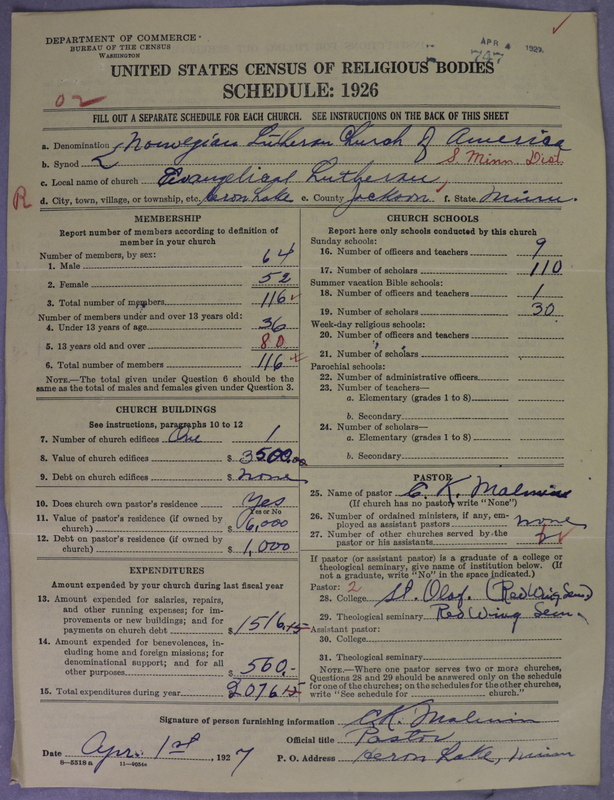 DEPARTMENT OF COMMERCE
BUREAU OF THE CENSUS
WASHINGTON
APR 4 1927
747
UNITED STATES CENSUS OF RELIGIOUS BODIES
SCHEDULE: 1926
02
FILL OUT A SEPARATE SCHEDULE FOR EACH CHURCH. SEE INSTRUCTIONS ON THE BACK OF THIS SHEET
a. Denomination Norwegian Lutheran Church of America
b. Synod S. Minn. Dist
c. Local name of church Evangelical Lutheran
R d. City, town, village, or township, etc. Heron Lake e. County Jackson f. State Minn.
MEMBERSHIP
Report number of members according to definition of member in your church
Number of members, by sex:
1. Male 64
2. Female 52
3. Total number of members 116
Number of members under and over 13 years old:
4. Under 13 years of age 36
5. 13 years old and over 80
6. Total number of members 116
NOTE.—The total given under Question 6 should be the same as the total of males and females given under Question 3.
CHURCH BUILDINGS
See instructions, paragraphs 10 to 12
7. Number of church edifices One 1
8. Value of church edifices $ 3500.00
9. Debt on church edifices $ none
10. Does church own pastor's residence Yes
Yes or No
11. Value of pastor's residence (if owned by church) $ 6,000
12. Debt on pastor's residence (if owned by church) $ 1,000
EXPENDITURES
Amount expended by your church during last fiscal year
13. Amount expended for salaries, repairs, and other running expenses; for improvements or new buildings; and for payments on church debt $ 1516.15
14. Amount expended for benevolences, including home and foreign missions; for denominational support; and for all other purposes $ 560.-
15. Total expenditures during year $ 2076.15
CHURCH SCHOOLS
Report here only schools conducted by this church
Sunday schools:
16. Number of officers and teachers 9
17. Number of scholars 110
Summer vacation Bible schools:
18. Number of officers and teachers 1
19. Number of scholars 30
Week-day religious schools:
20. Number of officers and teachers
21. Number of scholars
Parochial schools:
22. Number of administrative officers
23. Number of teachers—
a. Elementary (grades 1 to 8)
b. Secondary
24. Number of scholars—
a. Elementary (grades 1 to 8)
b. Secondary
PASTOR
25. Name of pastor C. K. Malmin
(If church has no pastor, write "None")
26. Number of ordained ministers, if any, employed as assistant pastors none
27. Number of other churches served by the pastor or his assistants
If pastor (or assistant pastor) is a graduate of a college or theological seminary, give name of institution below. (If not a graduate, write "No" in the space indicated.)
Pastor: 2
28. College St. Olaf. (Red Wing Sem.)
29. Theological seminary Red Wing Sem.
Assistant pastor:
30. College
31. Theological seminary
NOTE.—Where one pastor serves two or more churches, Questions 28 and 29 should be answered only on the schedule for one of the churches; on the schedules for the other churches, write "See schedule for church."
Signature of person furnishing information C.K. Malmin
Official title Pastor
Date Apr. 1st, 1927 P. O. Address Heron Lake, Minn
8—5518 a 11—9054